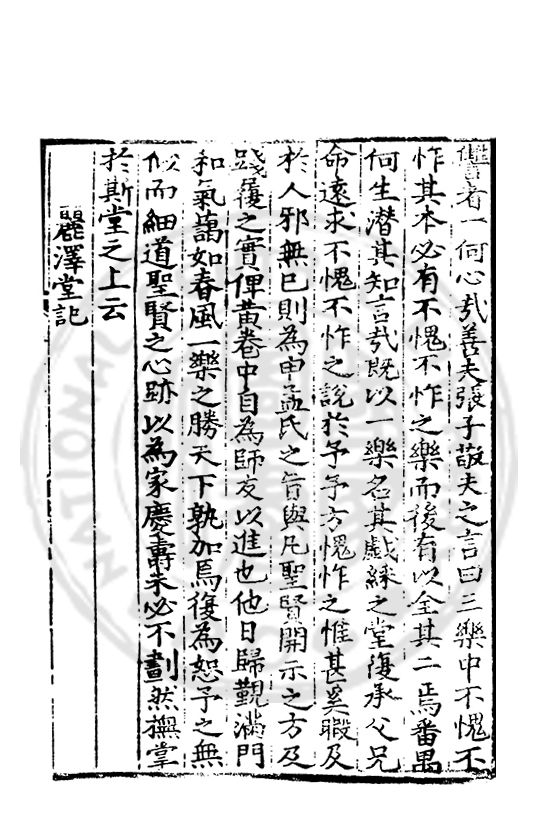 讎者一何心㢤善夫張子敬夫之言曰三樂中不愧不
怍其本必有不愧不怍之樂而後有以全其二焉番禺
何生潛其知言㢤既以一樂名其戯綵之堂復承父兄
命遠求不愧不怍之說於予予方愧怍之惟甚奚暇及
於人邪無已則為申孟氏之旨與凡聖賢開示之方及
踐履之實俾黄卷中自為師友以進也他日歸覲滿門
和氣藹如春風一樂之勝天下孰加焉復為恕予之無
似而細道聖賢之心跡以為家慶壽未必不劃然撫掌
於斯堂之上云
麗澤堂記